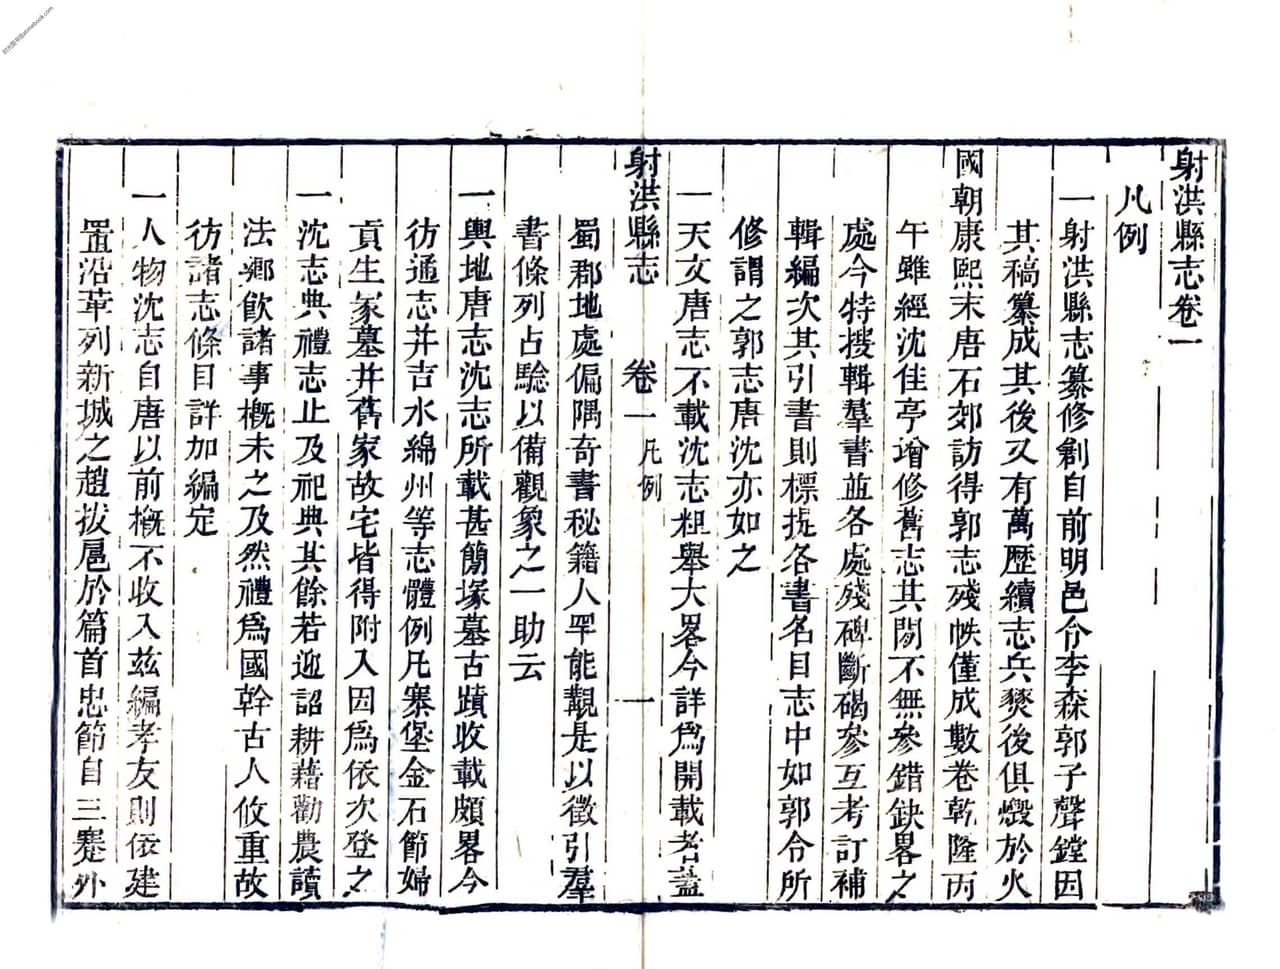 射洪縣志卷一
凡例
一射洪縣志纂修創自前明邑令李森郭子聲鏜因
其稿纂成其後又有萬歷續志兵燹後俱燬於火
國朝康熙末唐石郊訪得郭志殘帙僅成數卷乾隆丙
午雖經沈佳亭增修舊志其間不無參錯缺畧之
處今特搜輯羣書並各處殘碑斷碣參互考訂補
輯編次其引書則標提各書名目志中如郭令所
修謂之郭志唐沈亦如之
一天文唐志不載沈志粗舉大畧今詳為開載者蓋
射洪縣志 卷一 凡例 一
蜀郡地處偏隅奇書秘籍人罕能觀是以徵引羣
書條列占驗以備觀象之一助云
一輿地唐志沈志所載甚簡塚墓古蹟收載頗畧今
彷通志并吉水綿州等志體例凡寨堡金石節婦
貢生冢墓并舊家故宅皆得附入因為依次登之
一沈志典禮志止及祀典其餘若迎詔耕藉勸農讀
法鄉飲諸事概未之及然禮為國幹古人攸重故
彷諸志條目詳加編定
一人物沈志自唐以前概不收入茲編孝友則依建
置沿革列新城之趙拔扈於篇首忠節自三蹇外